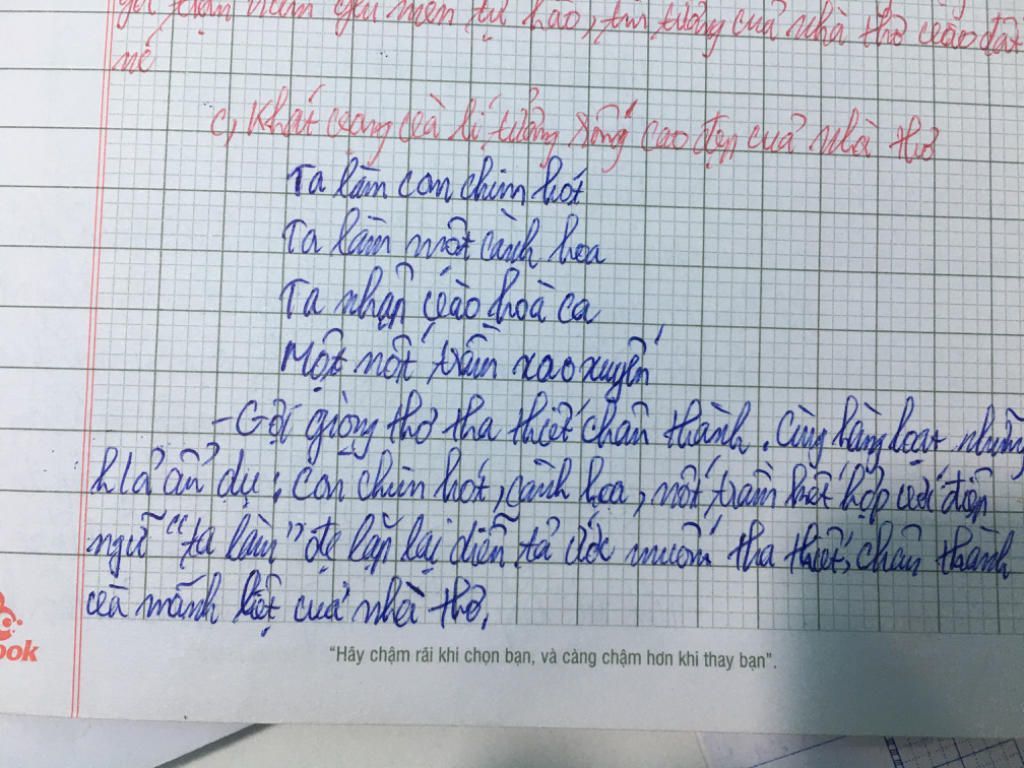 gửi thậm niềm yêu mến tự hào, tin tưởng của nhà thơ vào đất
nc
c, Khát vọng và lí tưởng sống cao đẹp của nhà thơ
Ta làm con chim hót
Ta làm một cành hoa
Ta nhập vào hoà ca
Một nốt trầm xao xuyến
- Với giọng thơ tha thiết chân thành. Cùng hàng loạt những
h/a ẩn dụ: Con chim hót, cành hoa, nốt trầm kết hợp với điệp
ngữ "ta làm" đc lặp lại diễn tả ước muốn tha thiết, chân thành
và mãnh liệt của nhà thơ.
ook
"Hãy chậm rãi khi chọn bạn, và càng chậm hơn khi thay bạn".